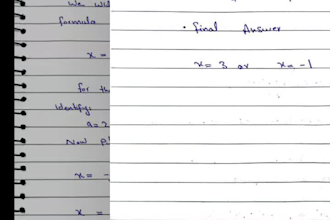 we will
formula
x =
for the
Identify:
a=2
Now Pl
x = -
x =
• final Answer
x= 3 or x= -1